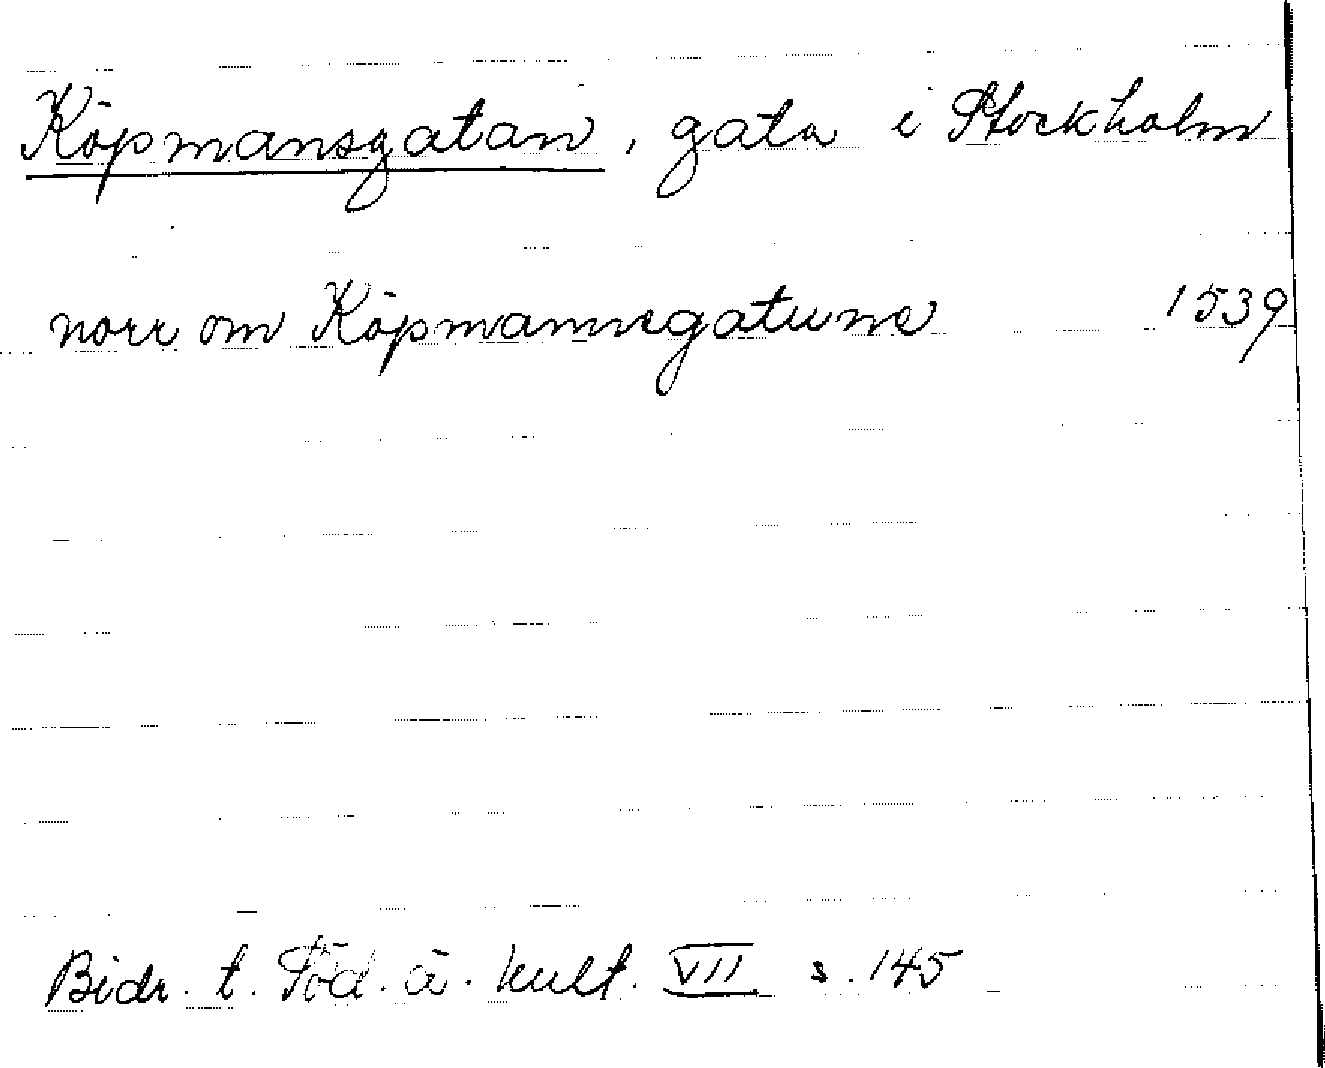 Köpmansgatan, gata i Stockholm
norr om Köpmannegatune 1539
Bidr. t. Söd. ä. kult. VII s. 145